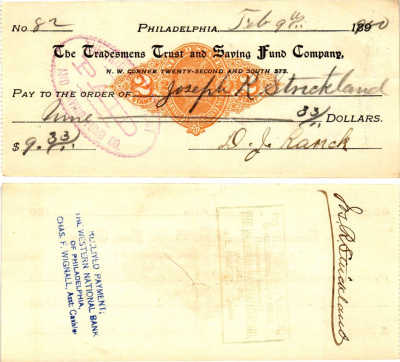 No. 82 Philadelphia, Feb 9th 1900
The Tradesmens Trust and Saving Fund Company,
N. W. CORNER TWENTY-SECOND AND SOUTH STS.
PAY TO THE ORDER OF Joseph R Strickland
Nine 33/ DOLLARS.
$9.33 D. J. Ranck
PAID
RECEIVED PAYMENT,
THE WESTERN NATIONAL BANK
OF PHILADELPHIA,
CHAS. F. WIGNALL, Asst. Cashier
Jos. R Strickland